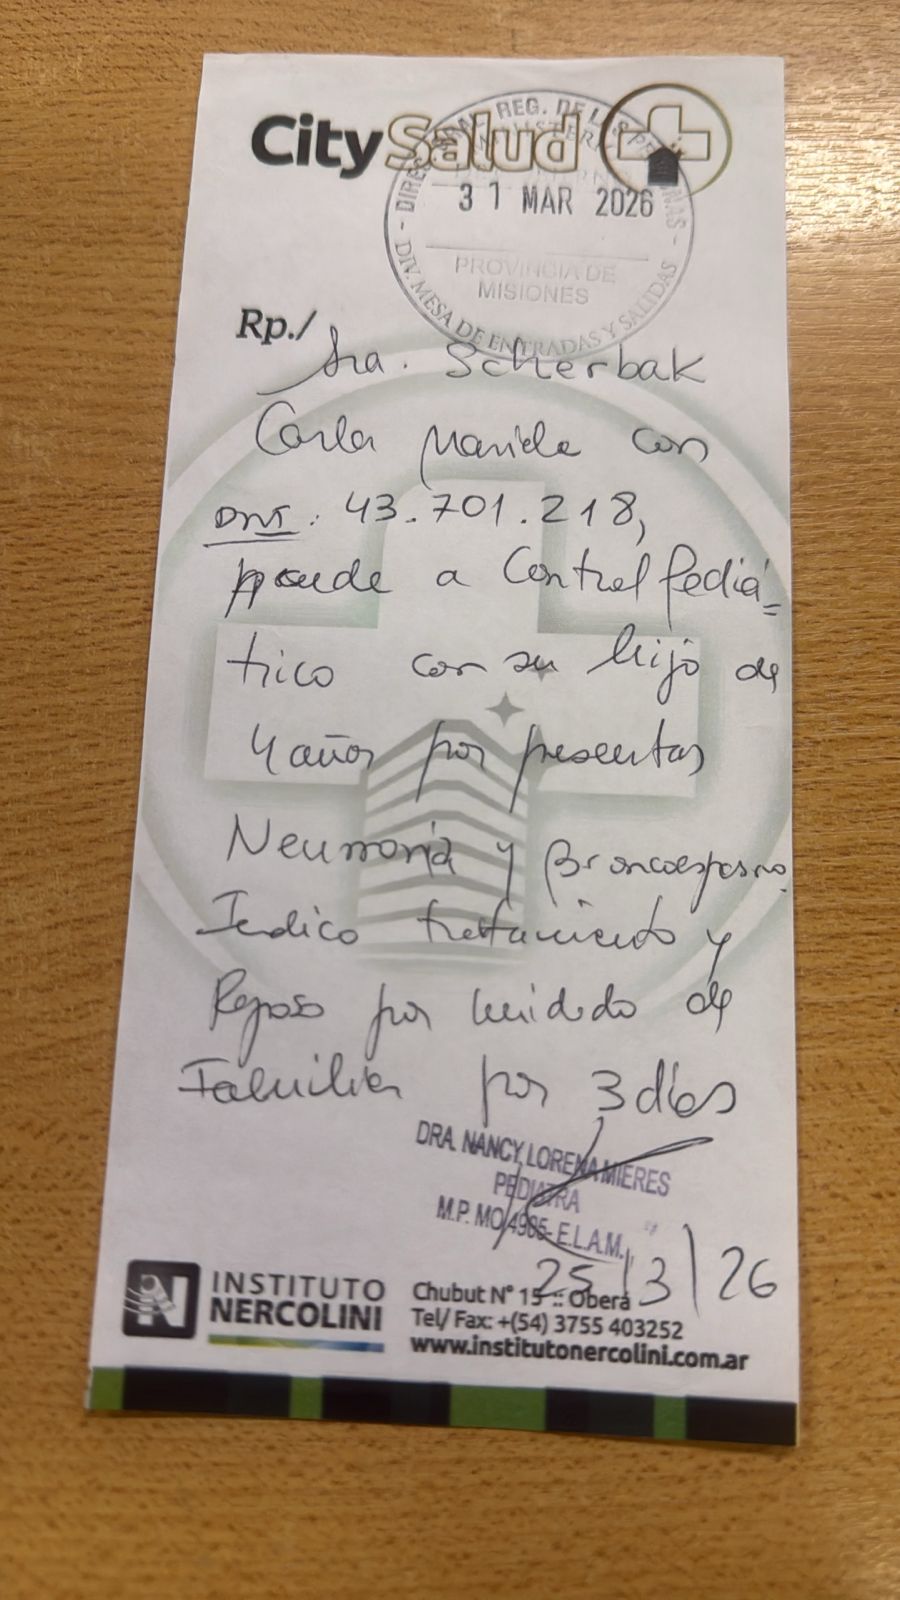 CitySalud
DIRE NAL REG. DE L S PE NAS - DIV. MESA DE ENTRADAS Y SALIDAS -
31 MAR 2026
PROVINCIA DE
MISIONES
Rp./
Sra. Scherbak
Carla Mariela con
DNI: 43.701.218,
acude a Control Pediá=
trico con su hijo de
4 años por presentar
Neumonia y Broncoespasmo.
Indico tratamiento y
Reposo por cuidado de
Familiar por 3 días
DRA. NANCY LORENA MIERES
PEDIATRA
M.P. MO 4985- E.L.A.M.
25/3/26
N INSTITUTO
NERCOLINI
Chubut N° 15 :: Oberá
Tel/ Fax: +(54) 3755 403252
www.institutonercolini.com.ar